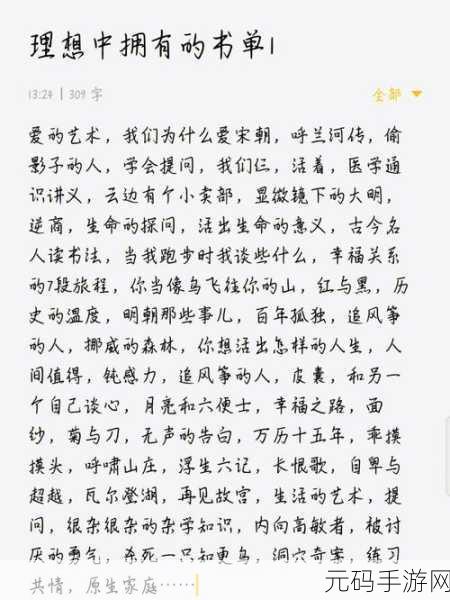 理想中拥有的书单1
13:24 | 309 字
全部
爱的艺术，我们为什么爱宋朝，呼兰河传，偷
影子的人，学会提问，我们仨，活着，医学通
识讲义，云边有个小卖部，显微镜下的大明，
逆商，生命的探问，活出生命的意义，古今名
人读书法，当我跑步时我谈些什么，幸福关系
的7段旅程，你当像鸟飞往你的山，红与黑，历
史的温度，明朝那些事儿，百年孤独，追风筝
的人，挪威的森林，你想活出怎样的人生，人
间值得，钝感力，追风筝的人，皮囊，和另一
个自己谈心，月亮和六便士，幸福之路，面
纱，菊与刀，无声的告白，万历十五年，乖摸
摸头，呼啸山庄，浮生六记，长恨歌，自卑与
超越，瓦尔登湖，再见故宫，生活的艺术，提
问，很杂很杂的杂学知识，内向高敏者，被讨
厌的勇气，杀死一只知更鸟，洞穴奇案，练习
共情，原生家庭……
元码手游网